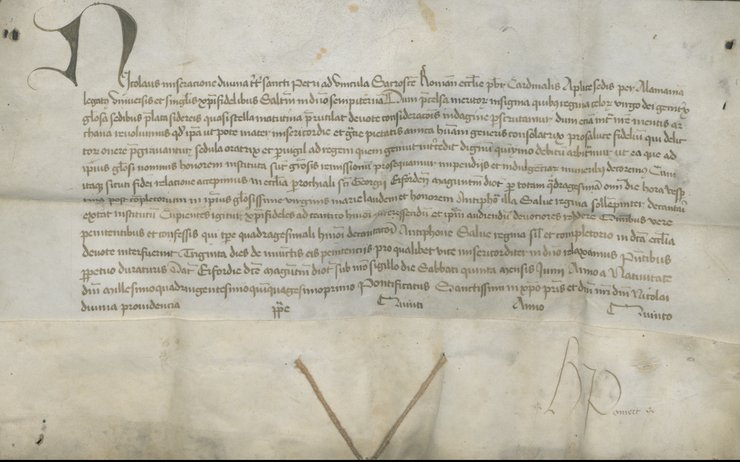 Nicolaus miseracione divina tt sancti Petri ad vincula Sacroscte Roman ecclie pbr Cardinalis Aplice sedis per Alamania
legatus Universis et singlis xpifidelibus Saltm in dno sempiterna Dum precelsa meritor insignia quibus regina celor virgo dei genitrix
gloosa sedibus plata sidereis quasi stella matutina prutilat devote consideracois indagine pscrutamur dum eciam infra nre mentis ar
chana revolvimus qd ipa ut pote mater misericordie et gre pietatis amica humani generis consolatrix pro salute fidelium qui delic
tor onere pgravantur sedula oratrix et pervigil ad regem quem genuit intercedit dignum quinymo debitum arbitramur ut ea que ad
ipius gloosi nominis honorem instituta sunt grosis remissionum prosequamur impendiis et indulgenciar muneribus decoremus Cum
itaque sicuti fidei relatione accepimus in ecclia parrochiali sci Georgii Erforden maguntin dioc per totam quadragesimam omni die hora vesp
tina post completorium in ipius gloosissime virginis marie laudem et honorem Antiphona illa Salve regina sollepniter decantari
extitit institutum Cupientes igitur xpifideles ad cantico huiusmodi accessendum et ipam audiendum devociores reddere Omnibus vere
penitentibus et confessis qui tpe quadragesimali huiusmodi decantacioni Antiphone Salve regina siml et completorio in dicta ecclia
devote interfuerint Triginta dies de iniunctis eis penitenciis pro qualibet vice misericorditer in dno relaxamus Pntibus
perpetuo duraturis Dat Erfordie dicte magutin dioc sub nro sigillo die Sabbati quinta mensis Junii Anno a Nativitate
dni millesimoquadringentesimoquinquagesimoprimo Pontificatus Sanctissimi in xpo pris et dni nri dni Nicolai
divina providencia ppe Quinti Anno Quinto